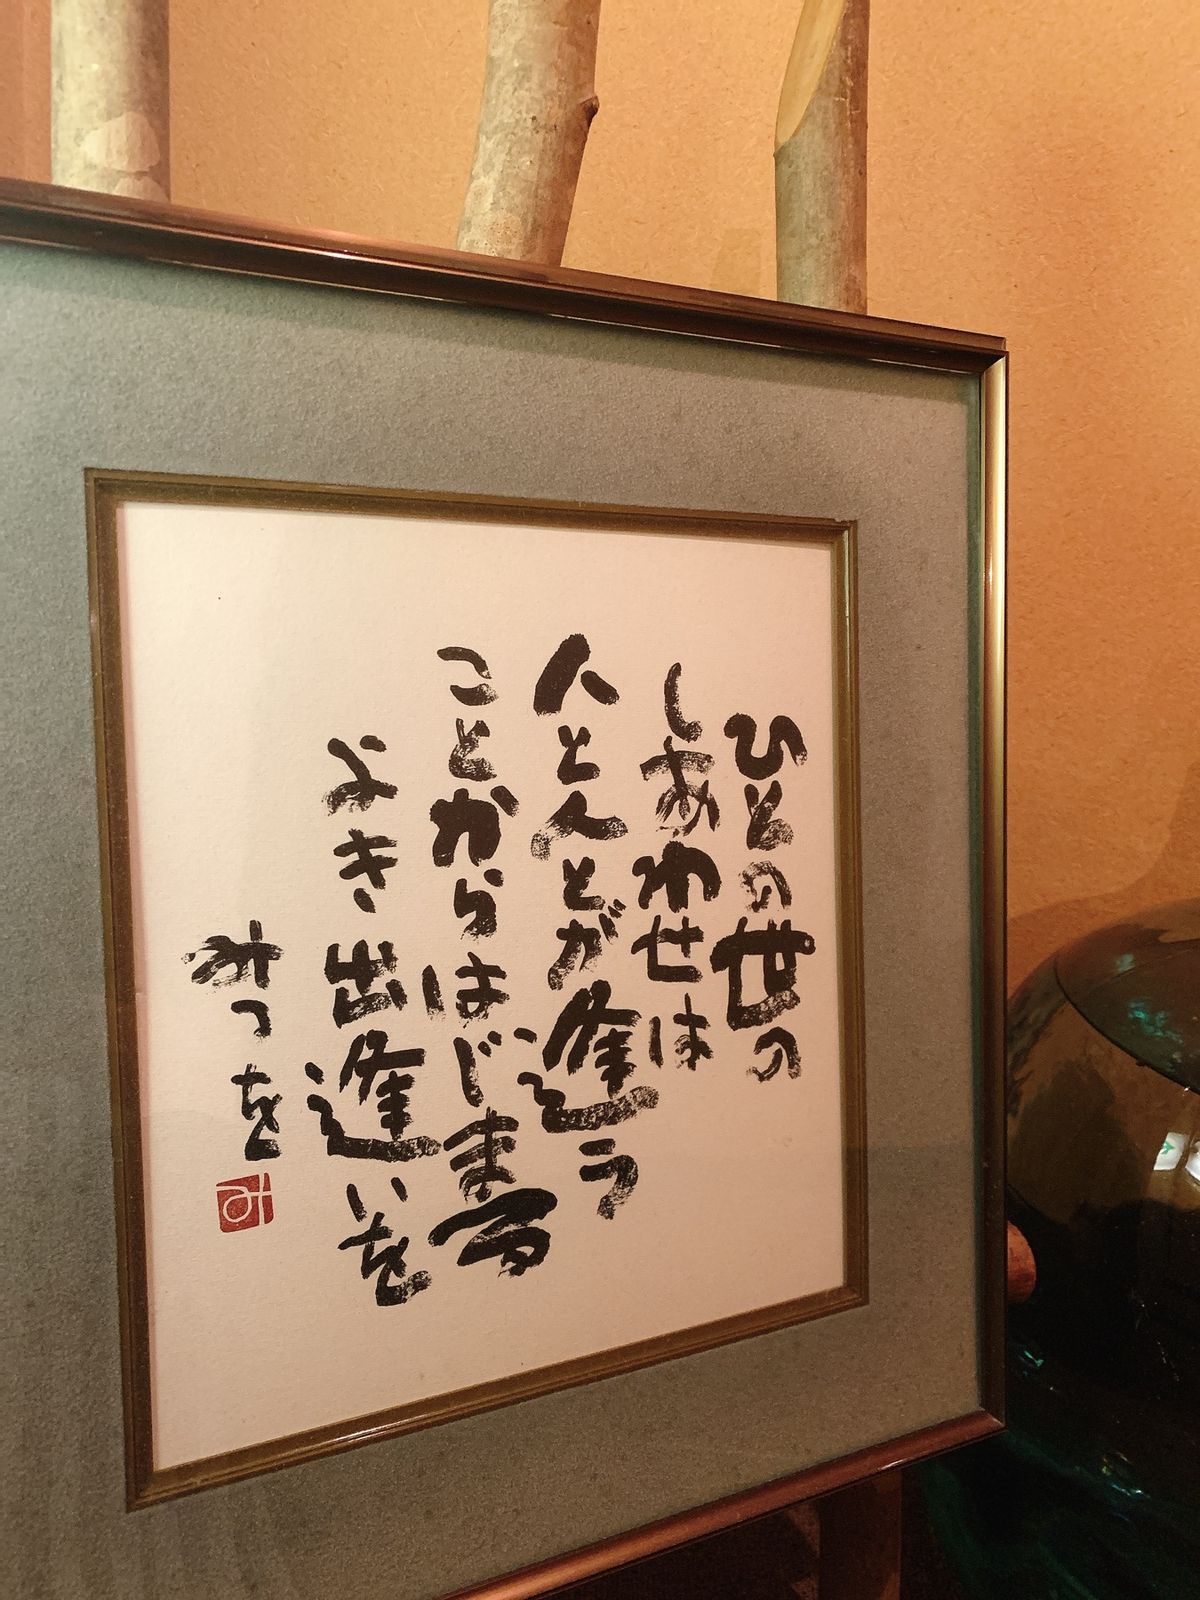 ひとの世の
しあわせは
人と人とが逢う
ことからはじまる
よき出逢いを
みつを
み